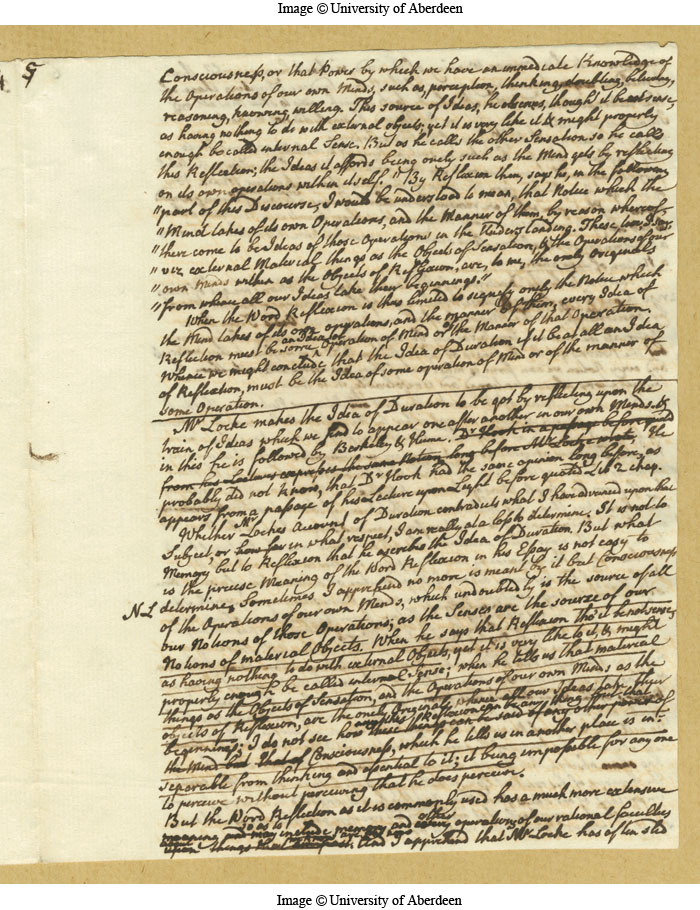 Image © University of Aberdeen
5
Consciousness, or that Power by which we have an immediate Knowledge of
the Operations of our own Minds, such as, perception, thinking, doubting, believing,
reasoning, knowing, willing. This source of Ideas, he observes, though it be not sense,
as having nothing to do with external objects, yet it is very like it & might properly
enough be called internal Sense. But as he calls the other Sensation so he calls
this Reflection; the Ideas it affords being onely such as the Mind gets by reflecting
on its own operations within itself. "By Reflexion then, says he, in the following
"part of this Discourse, I would be understood to mean, that Notice which the
"Mind takes of its own Operations, and the Manner of them, by reason whereof
"there come to be Ideas of those Operations in the Understanding. These two, I say,
"viz, external Material things as the Objects of Sensation, & the Operations of our
"own Minds within as the Objects of Reflexion, are, to me, the onely Originals
"from whence all our Ideas take their beginnings."
When the Word Reflexion is thus limited to signify onely the Notice which
the Mind takes of its own operations, and the manner of them, every Idea of
Reflection must be an Idea of some Operation of Mind or of the Manner of that Operation.
Whence we might conclude that the Idea of Duration if it be at all an Idea
of Reflexion, must be the Idea of some operation of Mind or of the manner of
some Operation.
Mr Locke makes the Idea of Duration to be got by reflecting upon the
train of Ideas which we find to appear one after another in our own Minds. &
in this he is followed by Berkeley & Hume. Dr Hook in a passage before
from his Lectures expresses the same notion long before Mr Locke wrote. He
probably did not know, that Dr Hook had the same opinion long before, as
appears from a passage of his Lecture upon Light before quoted chap.
Whether Mr Lockes Account of Duration contradicts what I have advanced upon this
Subject, or how far in what respect, I am really at a loss to determine; It is not to
Memory but to Reflexion that he ascribes the Idea of Duration. But what
is the precise Meaning of the Word Reflexion in his Essay is not easy to
determine, Sometimes I apprehend no more is meant by it but Consciousness
of the Operations of our own Minds, which undoubtedly is the source of all
our Notions of those Operations; as the Senses are the source of our
Notions of material Objects. When he says that Reflexion tho' it be not sense,
as having nothing to do with external Objects, yet it is very like to it, & might
properly enough be called internal Sense; when he tells us that material
things as the Objects of Sensation, and the Operations of our own Minds as the
objects of Reflexion, are the onely Originals whence all our Ideas take their
beginnings; I do not see how Reflexion can be any thing but that
Consciousness, which he tells us in another place is in-
separable from thinking and essential to it; it being impossible for any one
to perceive without perceiving that he does perceive.
But the Word Reflection as it is commonly used has a much more extensive
meaning so as to include memory and other operations of our rational faculties
and I apprehend that Mr Locke has often slid
Image © University of Aberdeen